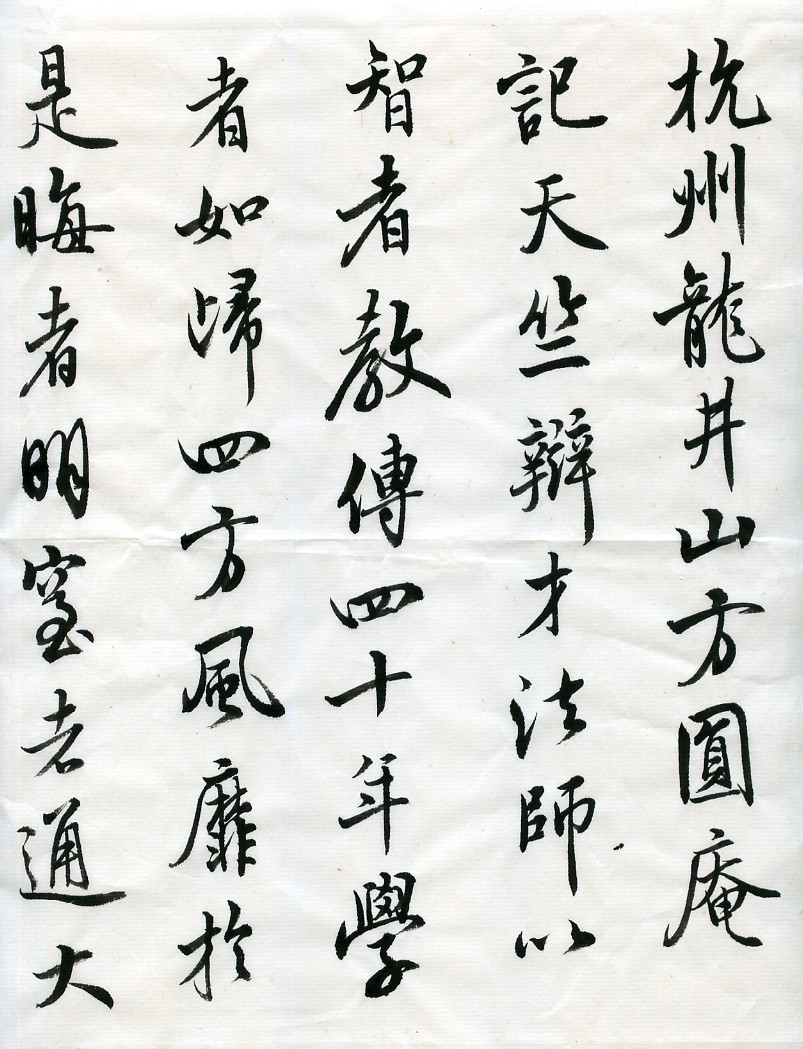 杭州龍井山方圓庵
記天竺辯才法師以
智者教傳四十年學
者如歸四方風靡於
是晦者明窒者通大